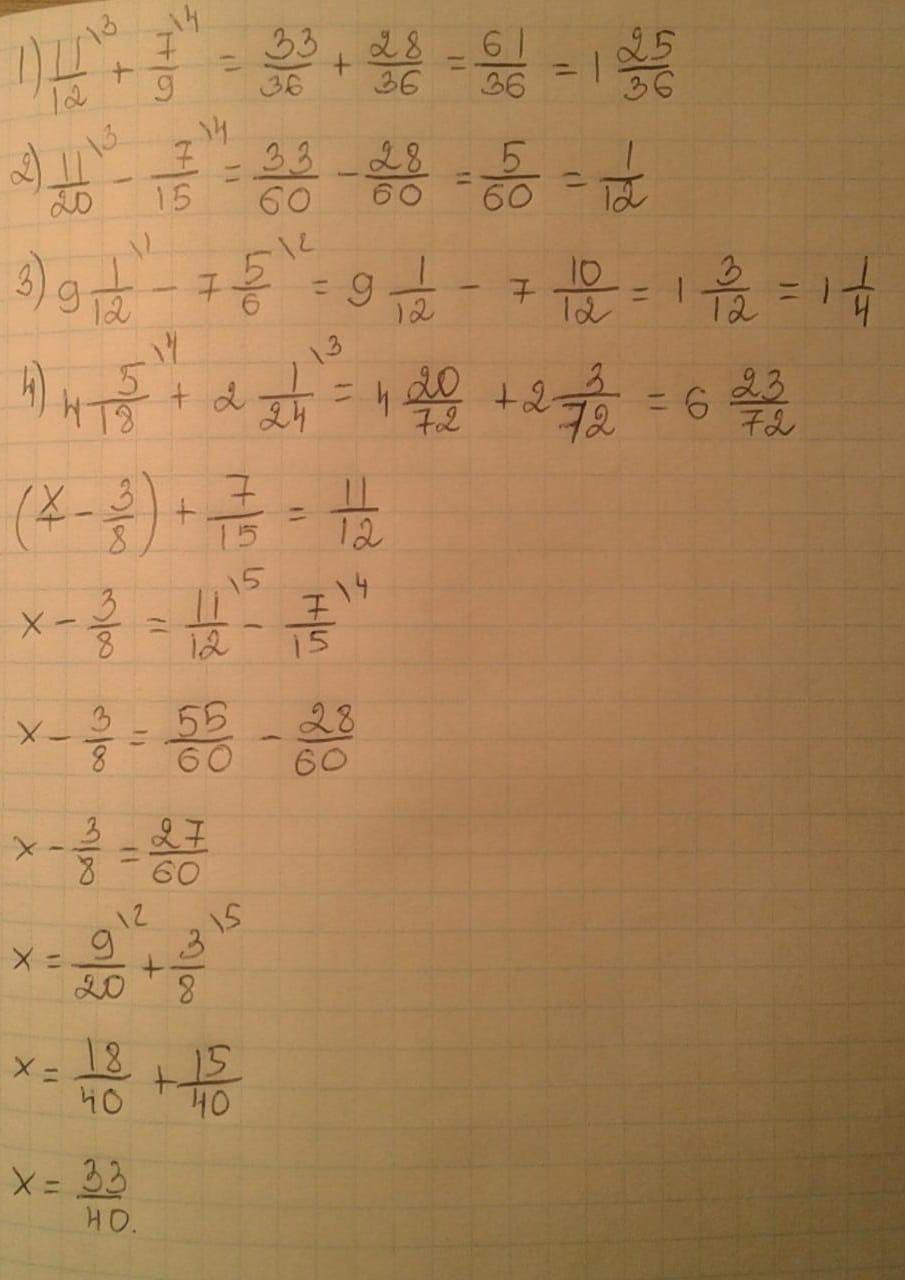 1) 11/12 \3 + 7/9 \4 = 33/36 + 28/36 = 61/36 = 1 25/36
2) 11/20 \3 - 7/15 \4 = 33/60 - 28/60 = 5/60 = 1/12
3) 9 1/12 \1 - 7 5/6 \2 = 9 1/12 - 7 10/12 = 1 3/12 = 1 1/4
4) 4 5/18 \4 + 2 1/24 \3 = 4 20/72 + 2 3/72 = 6 23/72
(x - 3/8) + 7/15 = 11/12
x - 3/8 = 11/12 \5 - 7/15 \4
x - 3/8 = 55/60 - 28/60
x - 3/8 = 27/60
x = 9/20 \2 + 3/8 \5
x = 18/40 + 15/40
x = 33/40.